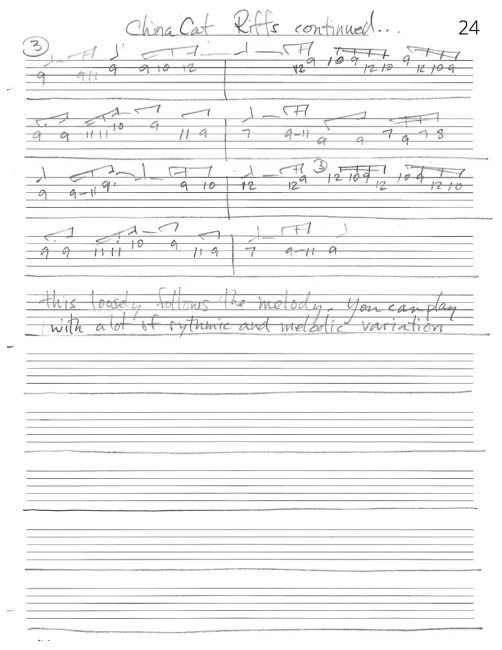 China Cat Riffs continued... 24
3
9 9 11 9 9 10 12 12 9 10 9 12 10 9 12 10 9
9 9 11 11 10 9 11 9 7 9-11 9 9 7 9 9 8
3
9 9-11 9 9 10 12 12 9 12 10 9 12 10 9 12 10
9 9 11 11 10 9 11 9 7 9-11 9
this loosely follows the melody. You can play
with a lot of rythmic and melodic variation